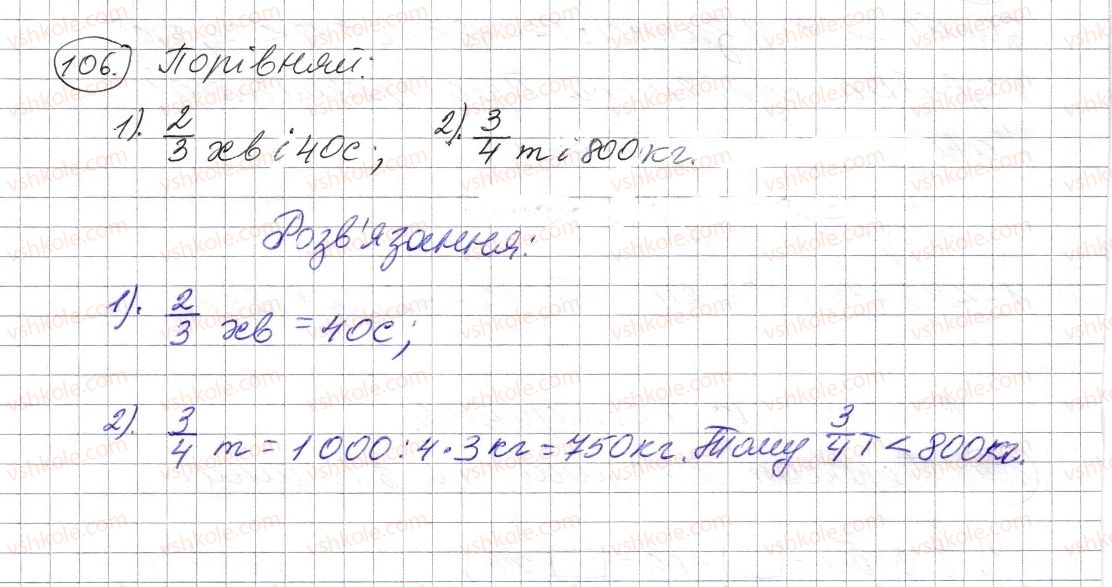 106. Порівняй:
1). 2/3 хв і 40с; 2). 3/4 т і 800 кг.
Розв'язання:
1). 2/3 хв = 40с;
2). 3/4 т = 1000 : 4 · 3 кг = 750 кг. Тому 3/4 т < 800 кг.